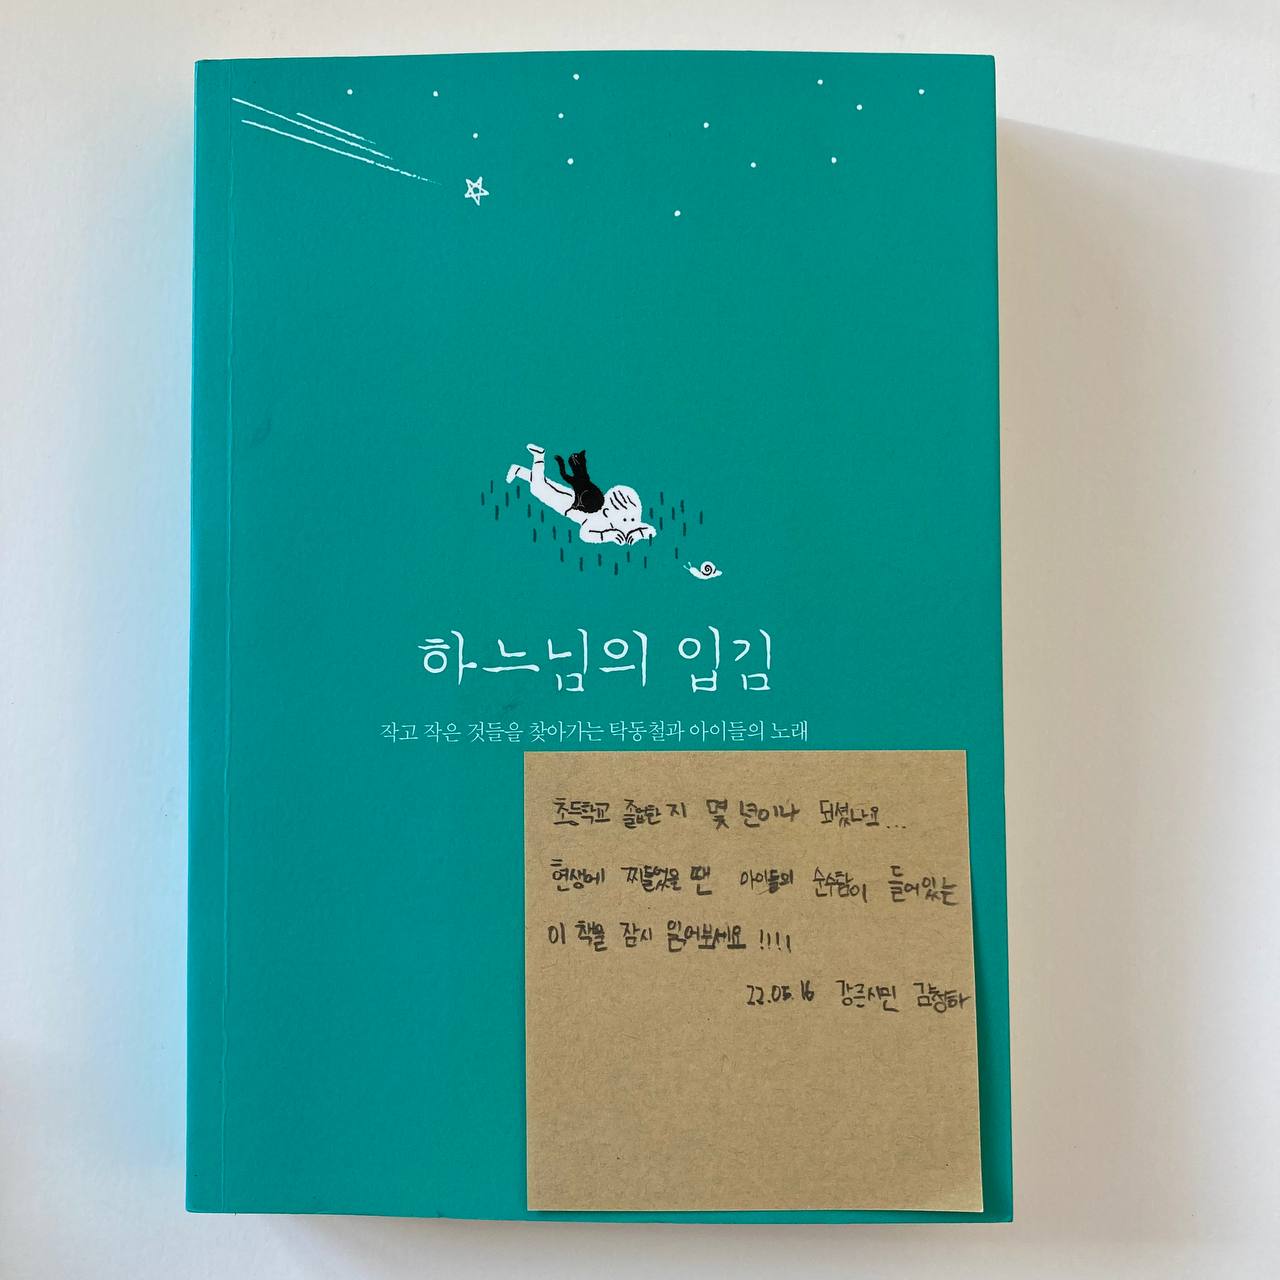 하느님의 입김
작고 작은 것들을 찾아가는 탁동철과 아이들의 노래
초등학교 졸업한 지 몇 년이나 되셨나요...
현생에 찌들었을 땐 아이들의 순수함이 들어있는
이 책을 잠시 읽어보세요 !!!!
22.05.16 강른시민 김청하